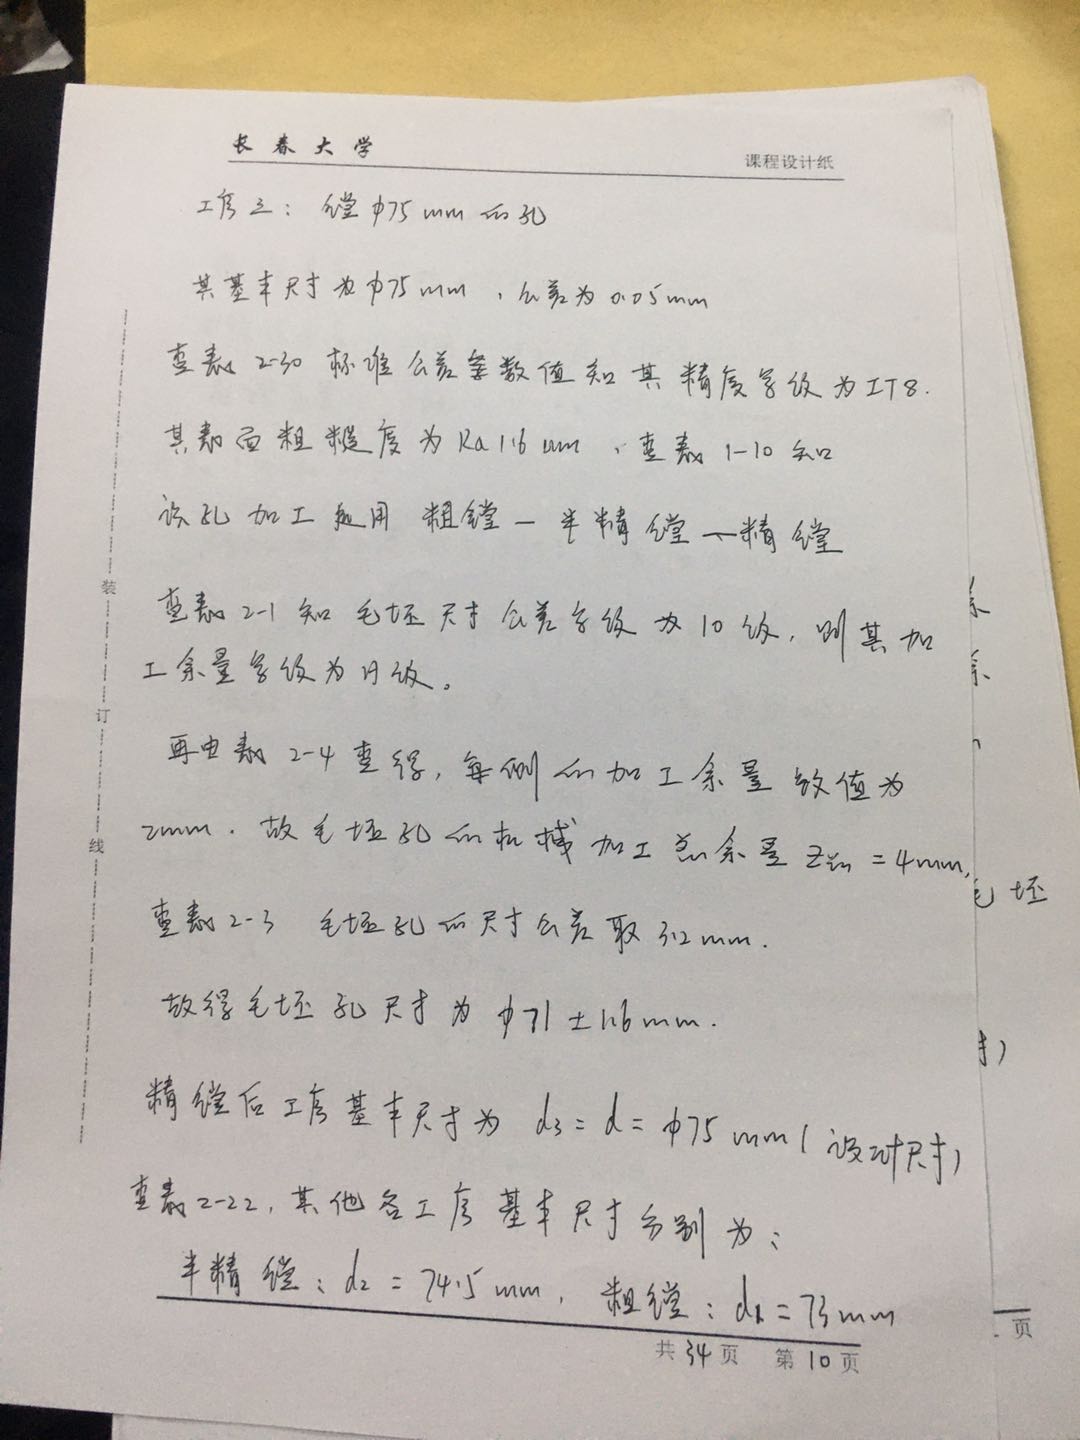 长春大学
课程设计纸
工序三：镗φ75mm的孔
其基本尺寸为φ75mm，公差为0.05mm
查表2-30标准公差等数值知其精度等级为IT8.
其表面粗糙度为Ra1.6um，查表1-10知
该孔加工选用粗镗—半精镗—精镗
查表2-1知毛坯尺寸公差等级为10级，则其加
工余量等级为H级。
再由表2-4查得，每侧的加工余量数值为
2mm.故毛坯孔的机械加工总余量Z =4mm,
查表2-3 毛坯孔的尺寸公差取3.2mm.
故得毛坯孔尺寸为φ71±1.6mm.
精镗后工序基本尺寸为 d3=d=φ75mm(设计尺寸)
查表2-22,其他各工序基本尺寸分别为：
半精镗：d2=74.5mm，粗镗：d1=73mm
共34页 第10页
装
订
线
余
余
毛坯
寸)
页